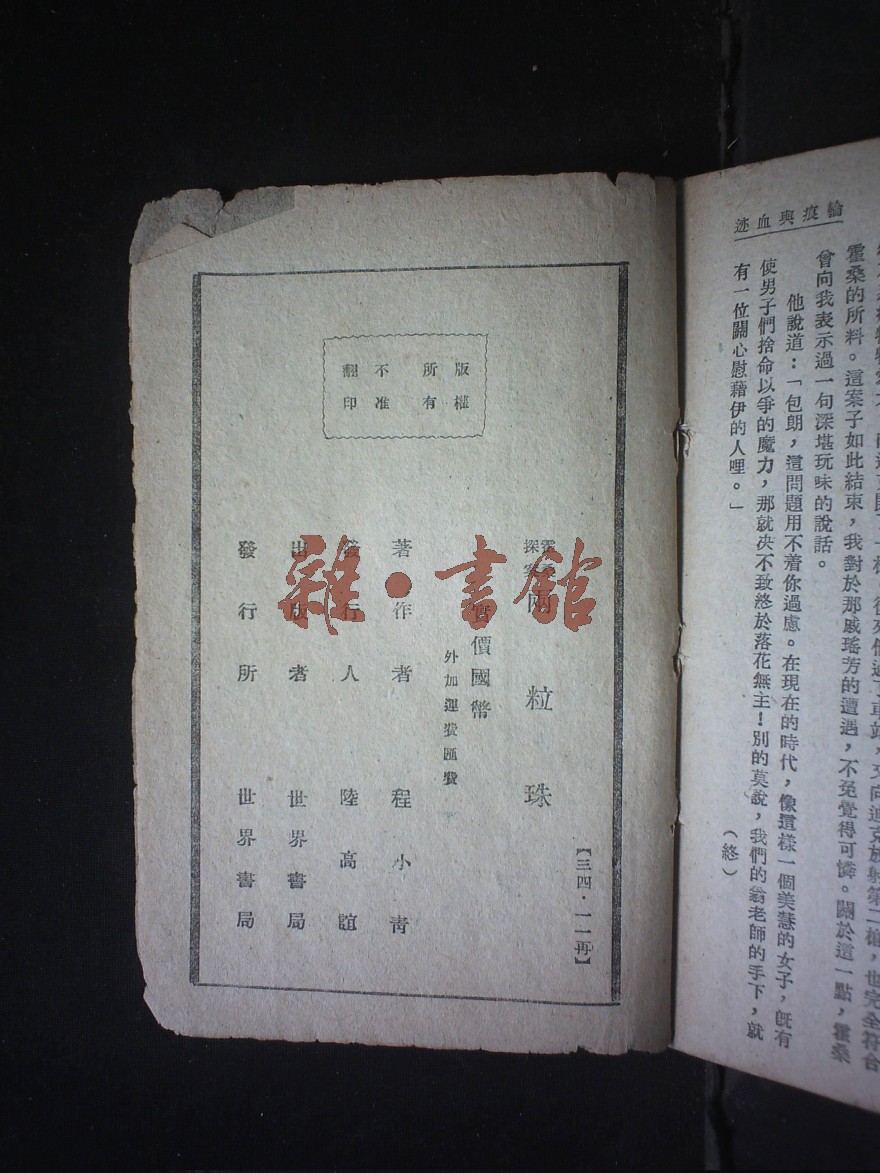 輪痕與血迹
霍桑的所料。這案子如此結束，我對於那戚瑤芳的遭遇，不免覺得可憐。關於這一點，霍桑
曾向我表示過一句深堪玩味的說話。
他說道：「包朗，這問題用不着你過慮。在現在的時代，像這樣一個美慧的女子，既有
使男子們捨命以爭的魔力，那就决不致終於落花無主！別的莫說，我們的翁老師的手下，就
有一位關心慰藉伊的人哩。」
（終）
版權
所有
不准
翻印
【三四·一一再】
霍桑
探案
兩粒珠
實價國幣
外加運費匯費
著作者 程小青
發行人 陸高誼
出版者 世界書局
發行所 世界書局
雜·書館